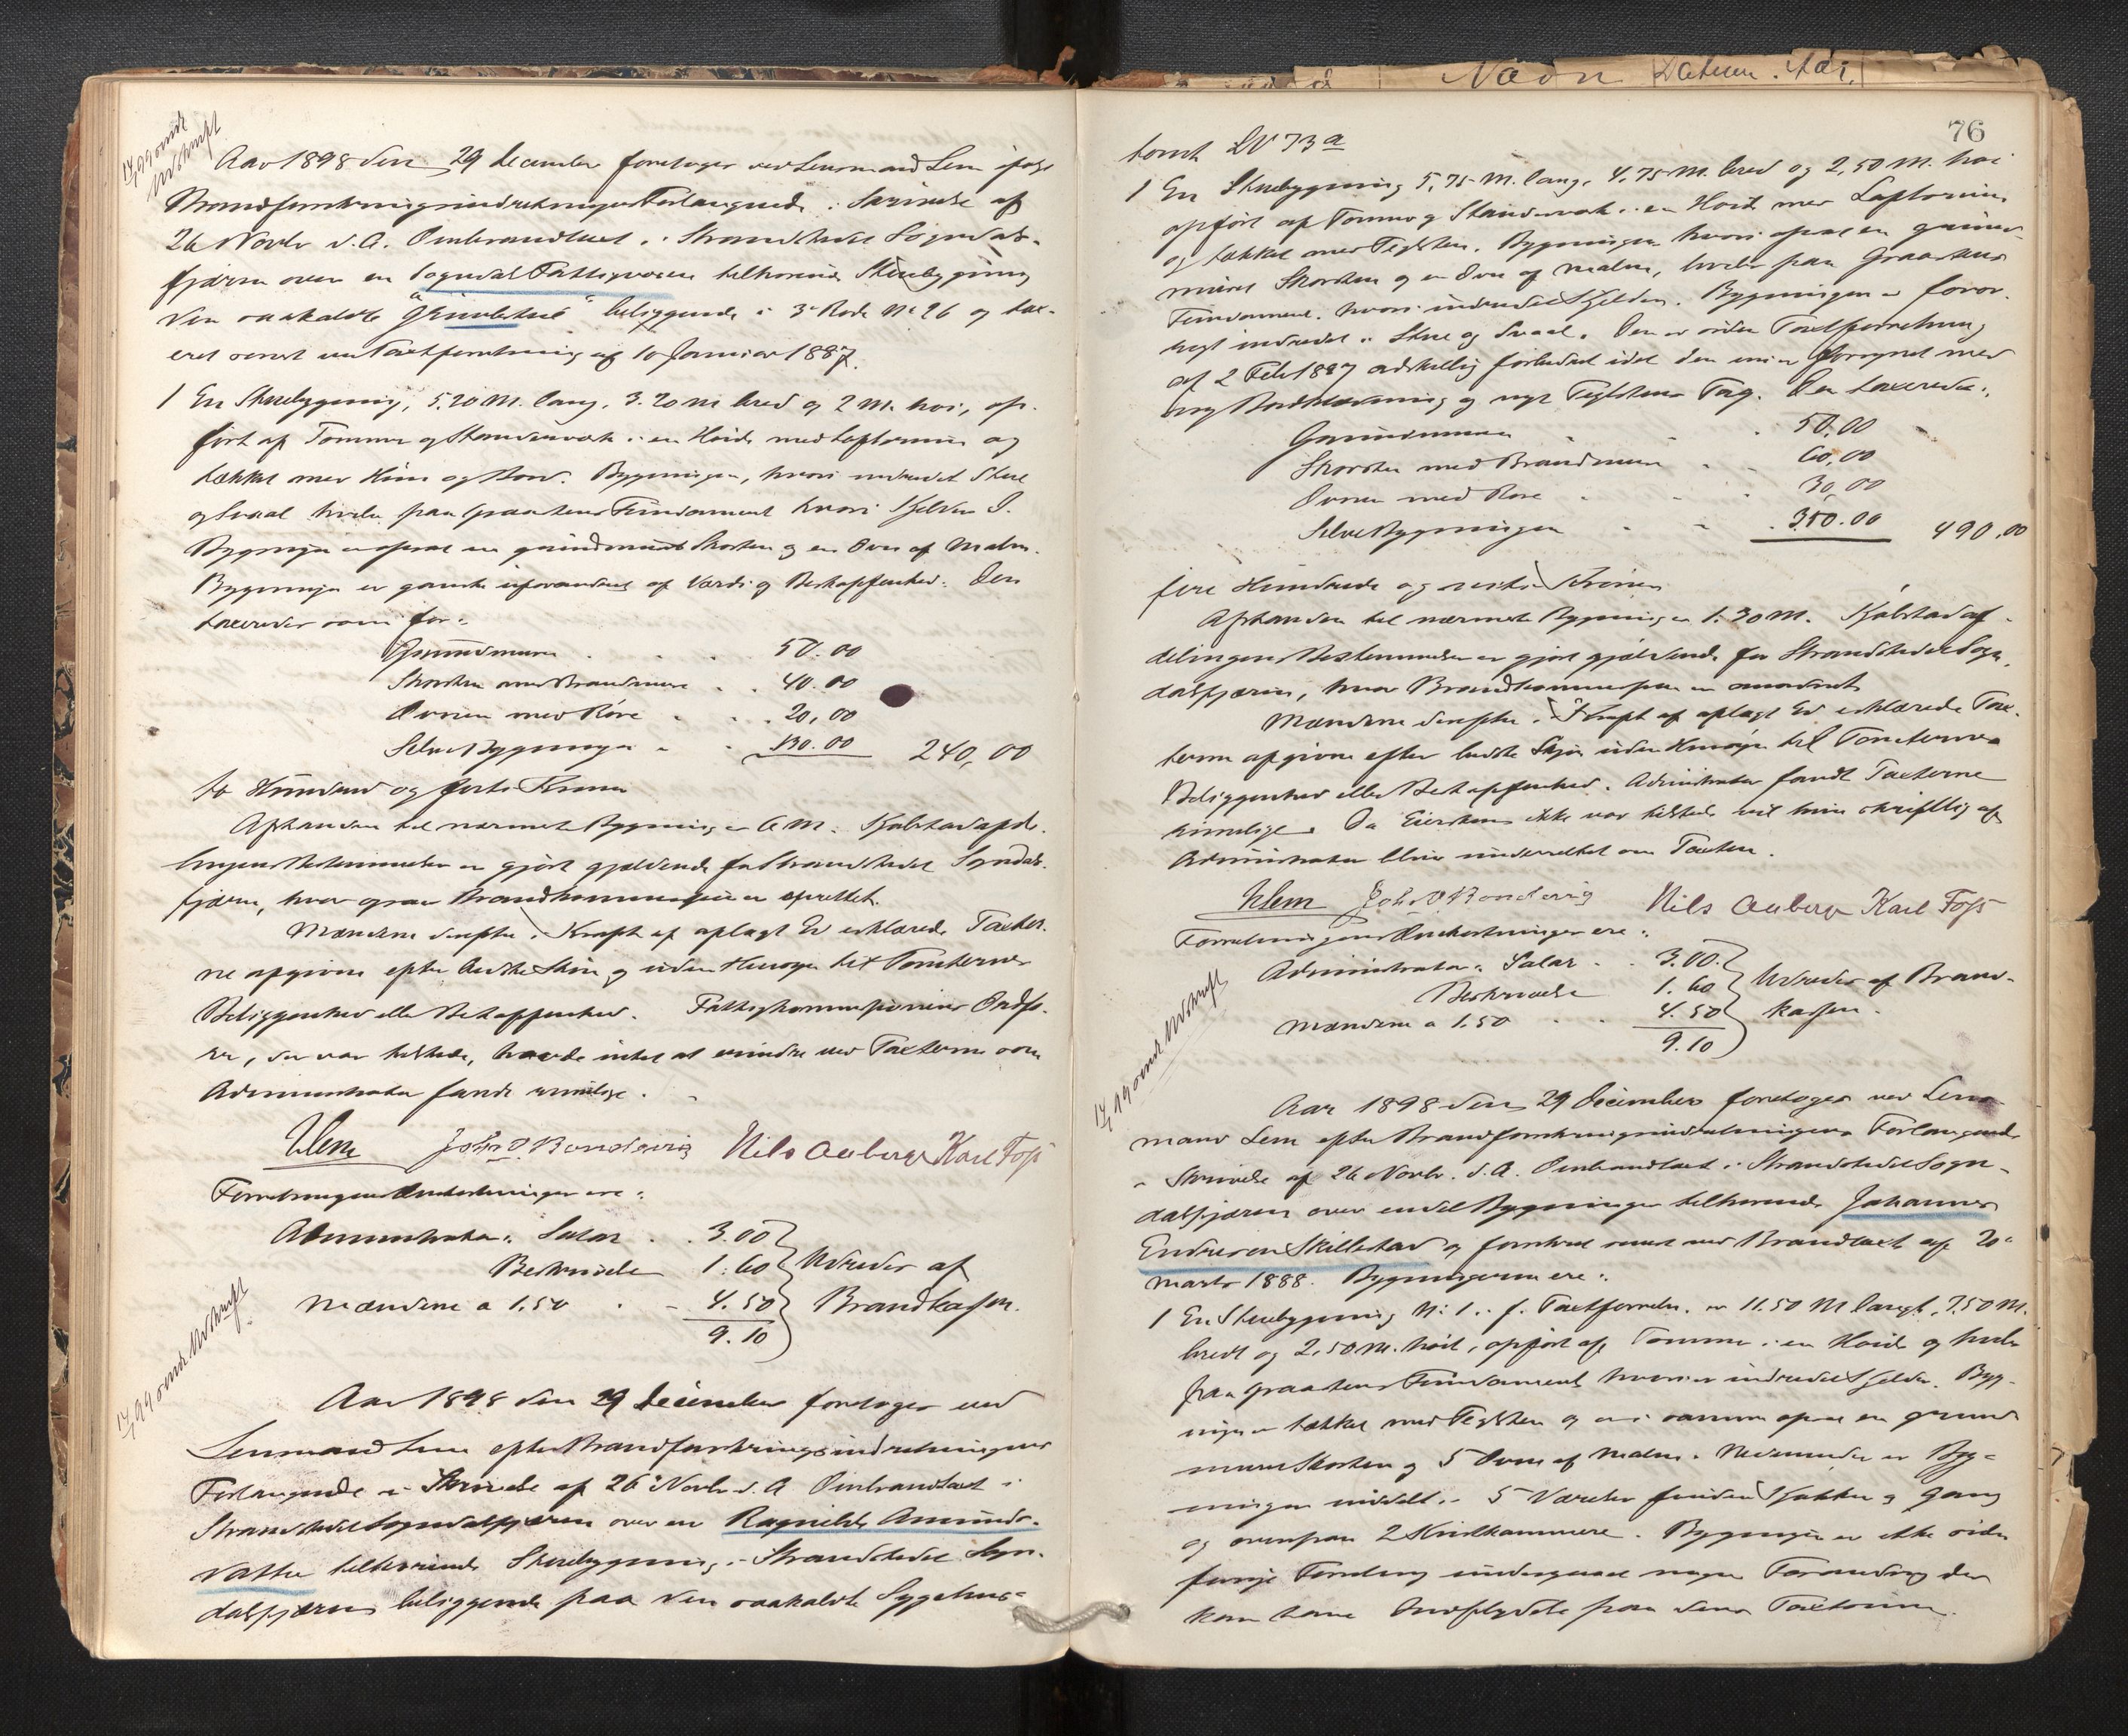 17/1 99 sendt Udskrift
Aar 1898 den 29 December foretoges ved Lensmand Lem ifølge
Brandforsikringsindretningens Forlangende i Skrivelse af
26 Novbr d.A. Ombrandtaxt i Strandstedet Sogndals-
fjæren over en Sogndal Fattigvæsen tilhørende Stuebygning
den saakaldte " " beliggende i 3die Rode No 26 og tax-
eret senest ved Taxtforretning af 10 Januar 1887.
1 En Stuebygning, 5.20 M. lang, 3.20 M bred og 2 M. høi, op-
ført af Tømmer og Standerværk i en Høide med Loftsrum og
tækket med Næver og Bord. Bygningen, hvori indredet Stue
og Svaal hviler paa Graastens Fundament hvori Kjelder. I
Bygningen er opsat en grundmuret Skorsten og en Ovn af Malm.
Bygningen er ganske uforandret af Værdi og Beskaffenhed. Den
taxeredes som før:
Grundmuren . . . 50.00
Skorsten med Brandmure . . 40.00
Ovnen med Røre . . . 20,00
Selve Bygningen . . 130.00 240,00
to Hundrede ogførti Kroner
Afstanden til nærmeste Bygning er 6 M. Kjøbstadafde-
lingens Bestemmelser er gjort gjældende for Strandstedet Sogndals-
fjæren, hvor ogsaa Brandkommission er oprettet.
Mændene derefter i Kraft af aflagt Ed erklærede Taxter-
ne afgivne efter bedste Skjøn og uden Hensyn til Tomternes
Beliggenhed eller Beskaffenhed. Fattigkommissionens Ordfø-
rer, der var tilstede, havde intet at erindre ved Taxterne som
Administrator fandt rimelige.
Lem John O. Bondevig Nils Auberge Karl Foss
Forretningens Omkostninger ere:
Administrator: Salær . . 3.00
Beskrivelse 1.60 Udredes af
Mændene a 1.50 . - 4.50 Brandkassen.
9.10
17/1 99 sendt Udskrift
Aar 1898 den 29 December foretoges ved
Lensmand Lem efter Brandforsikringsindretningens
Forlangende i Skrivelse af 26 Novbr d.A Ombrandtaxt i
Strandstedet Sogndalsfjæren over en Ragnilde Amunds-
datter tilhørende Stuebygning i Strandstedet Sogn-
dalsfjæren beliggende paa den saakaldte Sygehus-
76
tomt LN 73 a
1 En Stuebygning 5,75 M. lang, 4,75 M. bred og 2,50 M. høi
opført af Tømmer og Standerværk i en Høide med Loftsrum
og tækket med Teglsten. Bygningen hvori opsat en grund-
muret Skorsten og en Ovn af Malm, hviler paa Graastens
Fundament, hvori indredet Kjelder. Bygningen er forøv-
rigt indredet i Stue og Svaal. Den er siden Taxtforretning
af 2 Feb 1887 adskillig forbedret idet den er forsynet med
ny Bordklædning og nyt Teglstens Tag. Den taxeredes:
Grundmuren . . . 50.00
Skorsten med Brandmure . . 60,00
Ovnen med Røre . . . 30,00
Selve Bygningen . . 350.00 490,00
fire Hundrede og nitti Kroner
Afstanden til nærmeste Bygning er 1.30 M. Kjøbstadaf-
delingens Bestemmelser er gjort gjældende for Strandstedet Sogn-
dalsfjæren, hvor Brandkommission er anordnet.
Mændene derefter i Kraft af aflagt Ed erklærede Tax-
terne afgivne efter bedste Skjøn uden Hensyn til Tomternes
Beliggenhed eller Beskaffenhed. Administrator fandt Taxterne
rimelige. Da Eiersken ikke var tilstede vil hun skriftlig af
Administrator blive underrettet om Taxten.
Lem John O Bondevig Nils Auberge Karl Foss
Forretningens Omkostninger ere:
Administrator: Salær . . 3.00
Beskrivelse 1.60 Udredes af Brand-
Mændene a 1.50 . . 4.50 kassen.
9.10
17/1 99 sendt Udskrift
Aar 1898 den 29 December foretoges ved Lens-
mand Lem efter Brandforsikringsindretningens Forlangende
i Skrivelse af 26 Novbr. d.A. Ombrandtaxt i Strandstedet Sogn-
dalsfjæren over endel Bygninger tilhørende Johannes
Endresen Skillestad og forsikret senest ved Brandtaxt af 20de
Marts 1888. Bygningerne ere:
1 En Stuebygning No 1 i f. Taxtforretn. er 11.50 M langt, 7.50 M.
bredt og 2,50 M. høit, opført af Tømmer i en Høide og hviler
paa Graastens Fundament hvori er indredet Kjelder. Byg-
ningen er tækket med Teglsten og er i samme opsat en grund-
muret Skorsten og 5 Ovne af Malm. Nedenunder er Byg-
ningen inddelt i 5 Værelser foruden Kjøkken og Gang
og ovenpaa 2 Kvistkammere. Bygningen er ikke siden
forrige Forretning undergaaet nogen Forandring der
kan have Indflydelse paa dens Taxtsum.
Navn Datum. Aar.